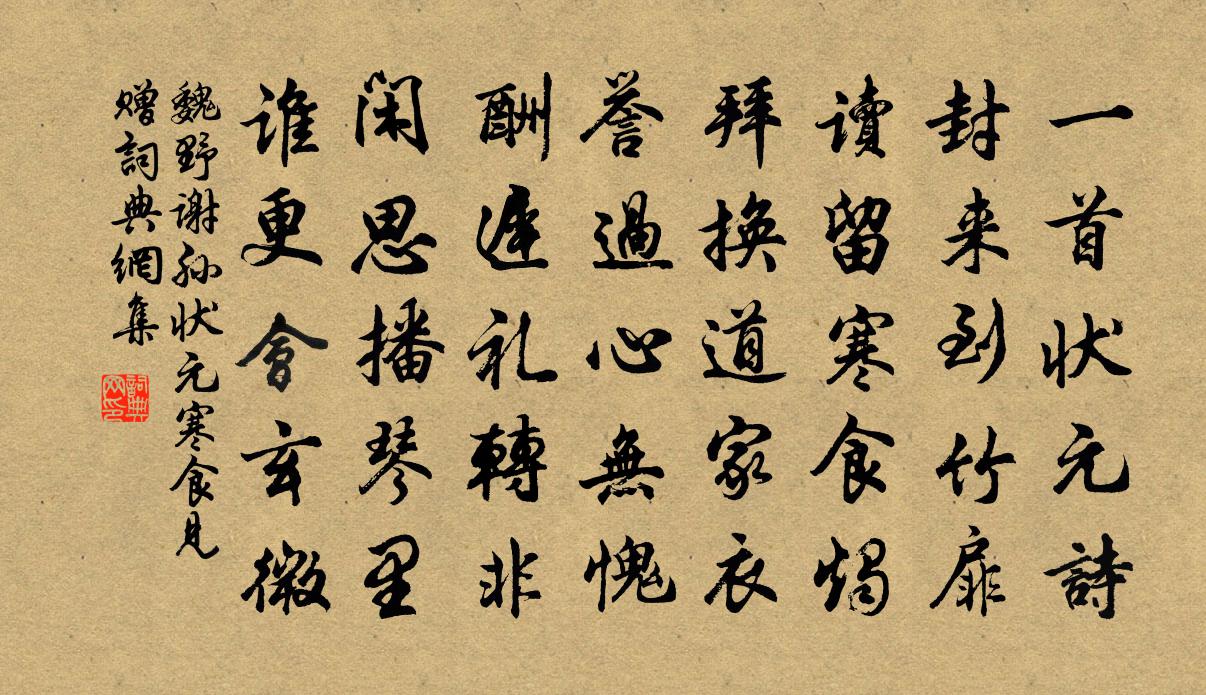 一首状元詩
封来到竹扉
讀留寒食燭
拜換道家衣
誉過心無愧
酬遲礼轉非
閑思播琴里
誰更會玄微
魏野谢孙状元寒食見
贈詞典網集
詞典网印